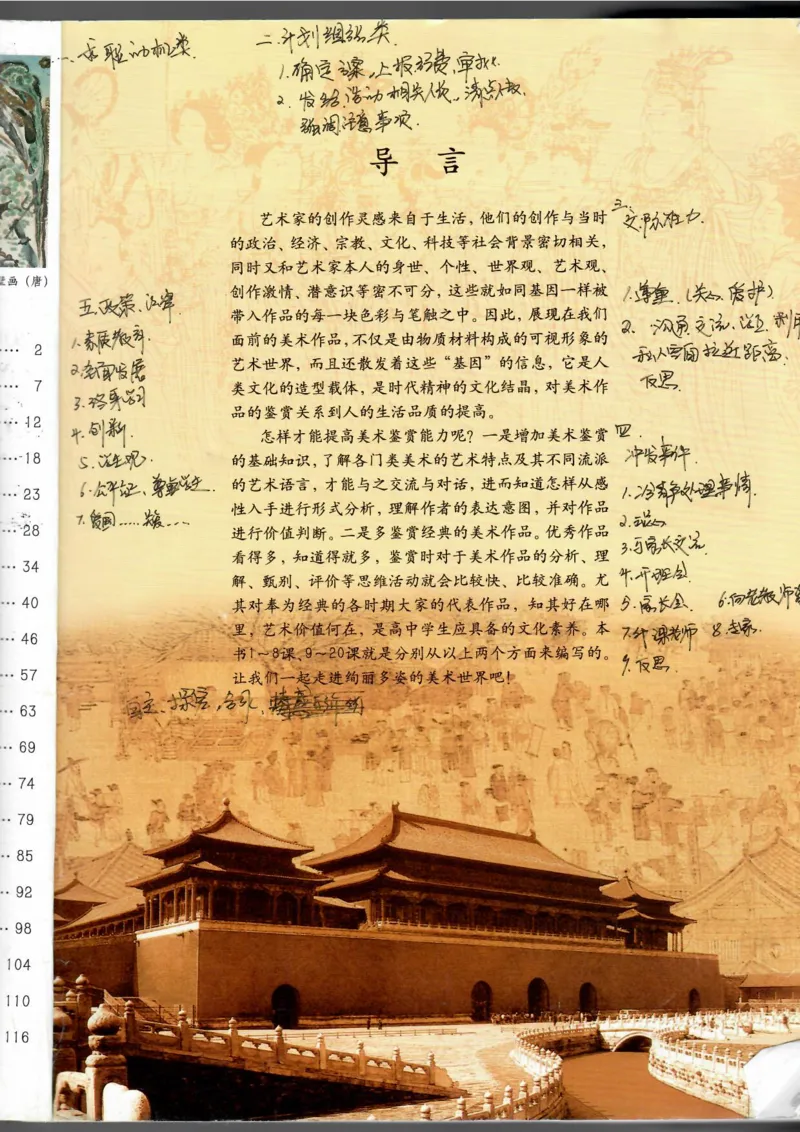 一.求职动机类.
二.计划组织类.
1.确定方案,上报经费,审批.
强调注意事项.
导 言
艺术家的创作灵感来自于生活，他们的创作与当时
的政治、经济、宗教、文化、科技等社会背景密切相关，
同时又和艺术家本人的身世、个性、世界观、艺术观、
创作激情、潜意识等密不可分，这些就如同基因一样被
带入作品的每一块色彩与笔触之中。因此，展现在我们
面前的美术作品，不仅是由物质材料构成的可视形象的
艺术世界，而且还散发着这些“基因”的信息，它是人
类文化的造型载体，是时代精神的文化结晶，对美术作
品的鉴赏关系到人的生活品质的提高。
怎样才能提高美术鉴赏能力呢？一是增加美术鉴赏
的基础知识，了解各门类美术的艺术特点及其不同流派
的艺术语言，才能与之交流与对话，进而知道怎样从感
性入手进行形式分析，理解作者的表达意图，并对作品
进行价值判断。二是多鉴赏经典的美术作品。优秀作品
看得多，知道得就多，鉴赏时对于美术作品的分析、理
解、甄别、评价等思维活动就会比较快、比较准确。尤
其对奉为经典的各时期大家的代表作品，知其好在哪
里，艺术价值何在，是高中学生应具备的文化素养。本
书1～8课、9～20课就是分别从以上两个方面来编写的。
让我们一起走进绚丽多姿的美术世界吧！
三.
交际能力.
1.尊重.(关心,爱护)
2.沟通交流、
私人空间拉近距离.
反思.
四.
冲发事件.
1.冷静处理事情.
3.与家长交流.
4.开班会.
5.家长会.
8.
9.反思
五.政策、法律.
1.素质教育.
2.全面发展
3.终身学习
4.创新.
5.学生观.
6.公平公正、尊重学生.
7.
自主、探究,合作、
壁画（唐）
2
7
12
18
23
28
34
40
46
57
63
69
74
79
85
92
98
104
110
116